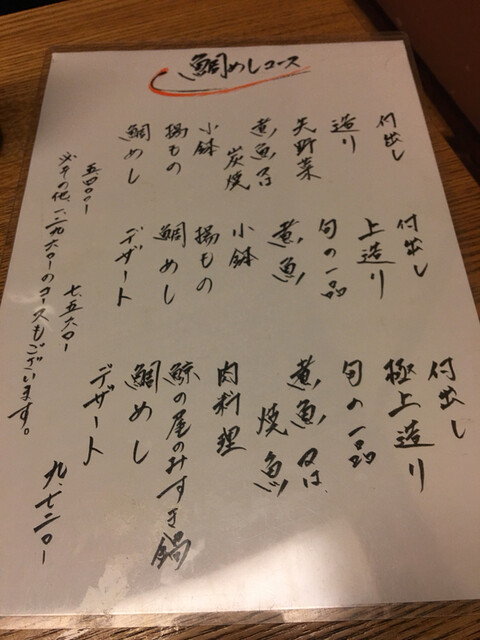 鯛めしコース
付出し
造り
天野菜
煮魚又は
炭焼
小鉢
揚もの
鯛めし
五四〇〇ー
付出し
上造り
旬の一品
煮魚
小鉢
揚もの
鯛めし
デザート
七、五六〇ー
付出し
極上造り
旬の一品
煮魚又は
焼魚
肉料理
鯨の尾のみすき鍋
鯛めし
デザート
九、七二〇ー
その他一二九六〇ーのコースもございます。